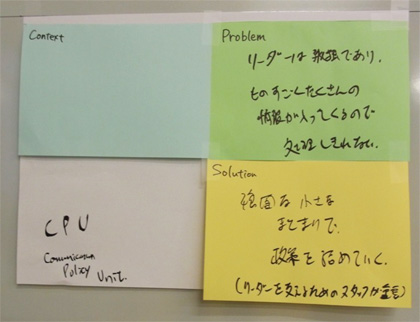 Context
Problem
リーダーは敏感であり、
ものすごくたくさんの
情報が入ってくるので
処理しきれない。
CPU
Communication
Policy Unit.
Solution
強固な小さな
まとまりで、
政策を詰めていく。
(リーダーを支えるためのスタッフが重要)